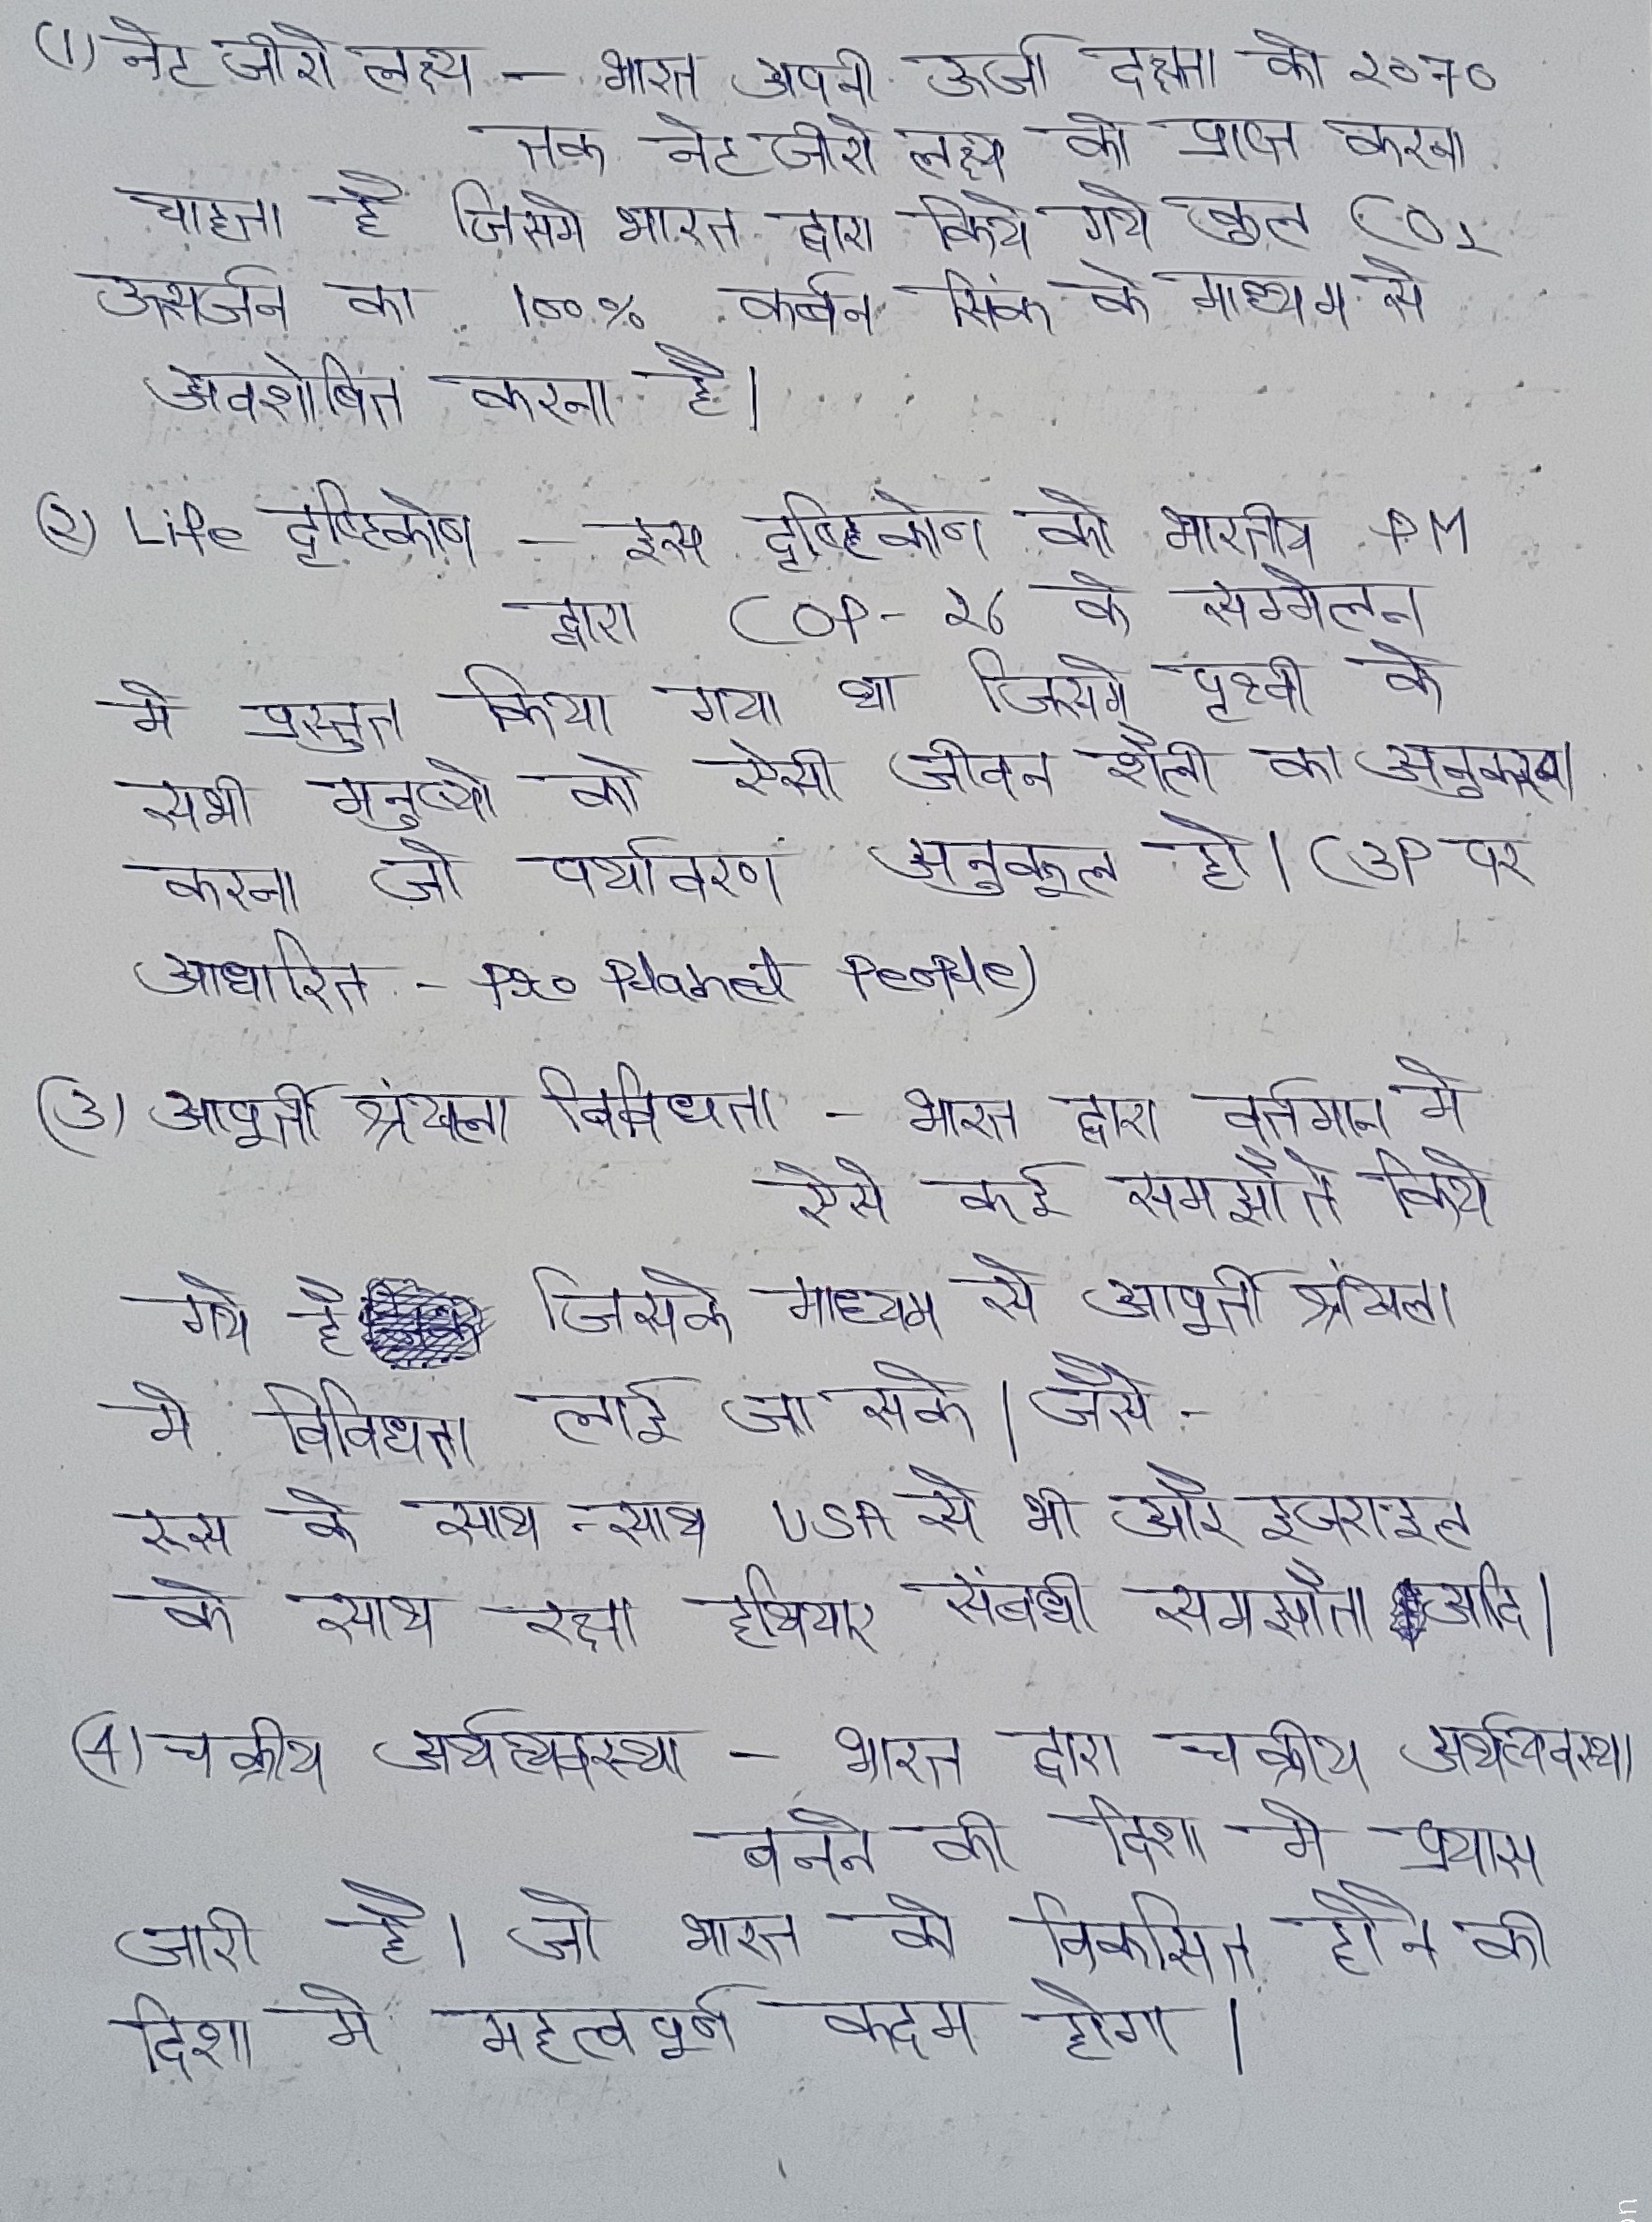 (1) नेट जीरो लक्ष्य – भारत अपनी ऊर्जा दक्षता को 2070
तक नेट जीरो लक्ष्य को प्राप्त करना
चाहता है जिसमे भारत द्वारा किये गये कुल CO2
उत्सर्जन का 100% कर्बन सिंक के माध्यम से
अवशोषित करना है।
(2) Life दृष्टिकोण – इस दृष्टिकोण को भारतीय PM
द्वारा COP-26 के सम्मेलन
मे प्रस्तुत किया गया था जिसमे पृथ्वी के
सभी मनुष्यो को ऐसी जीवन शैली का अनुकरण
करना जो पर्यावरण अनुकूल हो। (3P पर
आधारित - Pro Planet People)
(3) आपूर्ती श्रंखला विविधता – भारत द्वारा वर्तमान मे
ऐसे कई समझौते किये
गये है जिसके माध्यम से आपूर्ती श्रंखला
मे विविधता लाई जा सके। जैसे -
रूस के साथ-साथ USA से भी और इजराइल
के साथ रक्षा हथियार संबधी समझौता आदि।
(4) चक्रीय अर्थव्यवस्था – भारत द्वारा चक्रीय अर्थव्यवस्था
बनने की दिशा मे प्रयास
जारी है। जो भारत को विकसित होने की
दिशा मे महत्वपूर्ण कदम होगा।